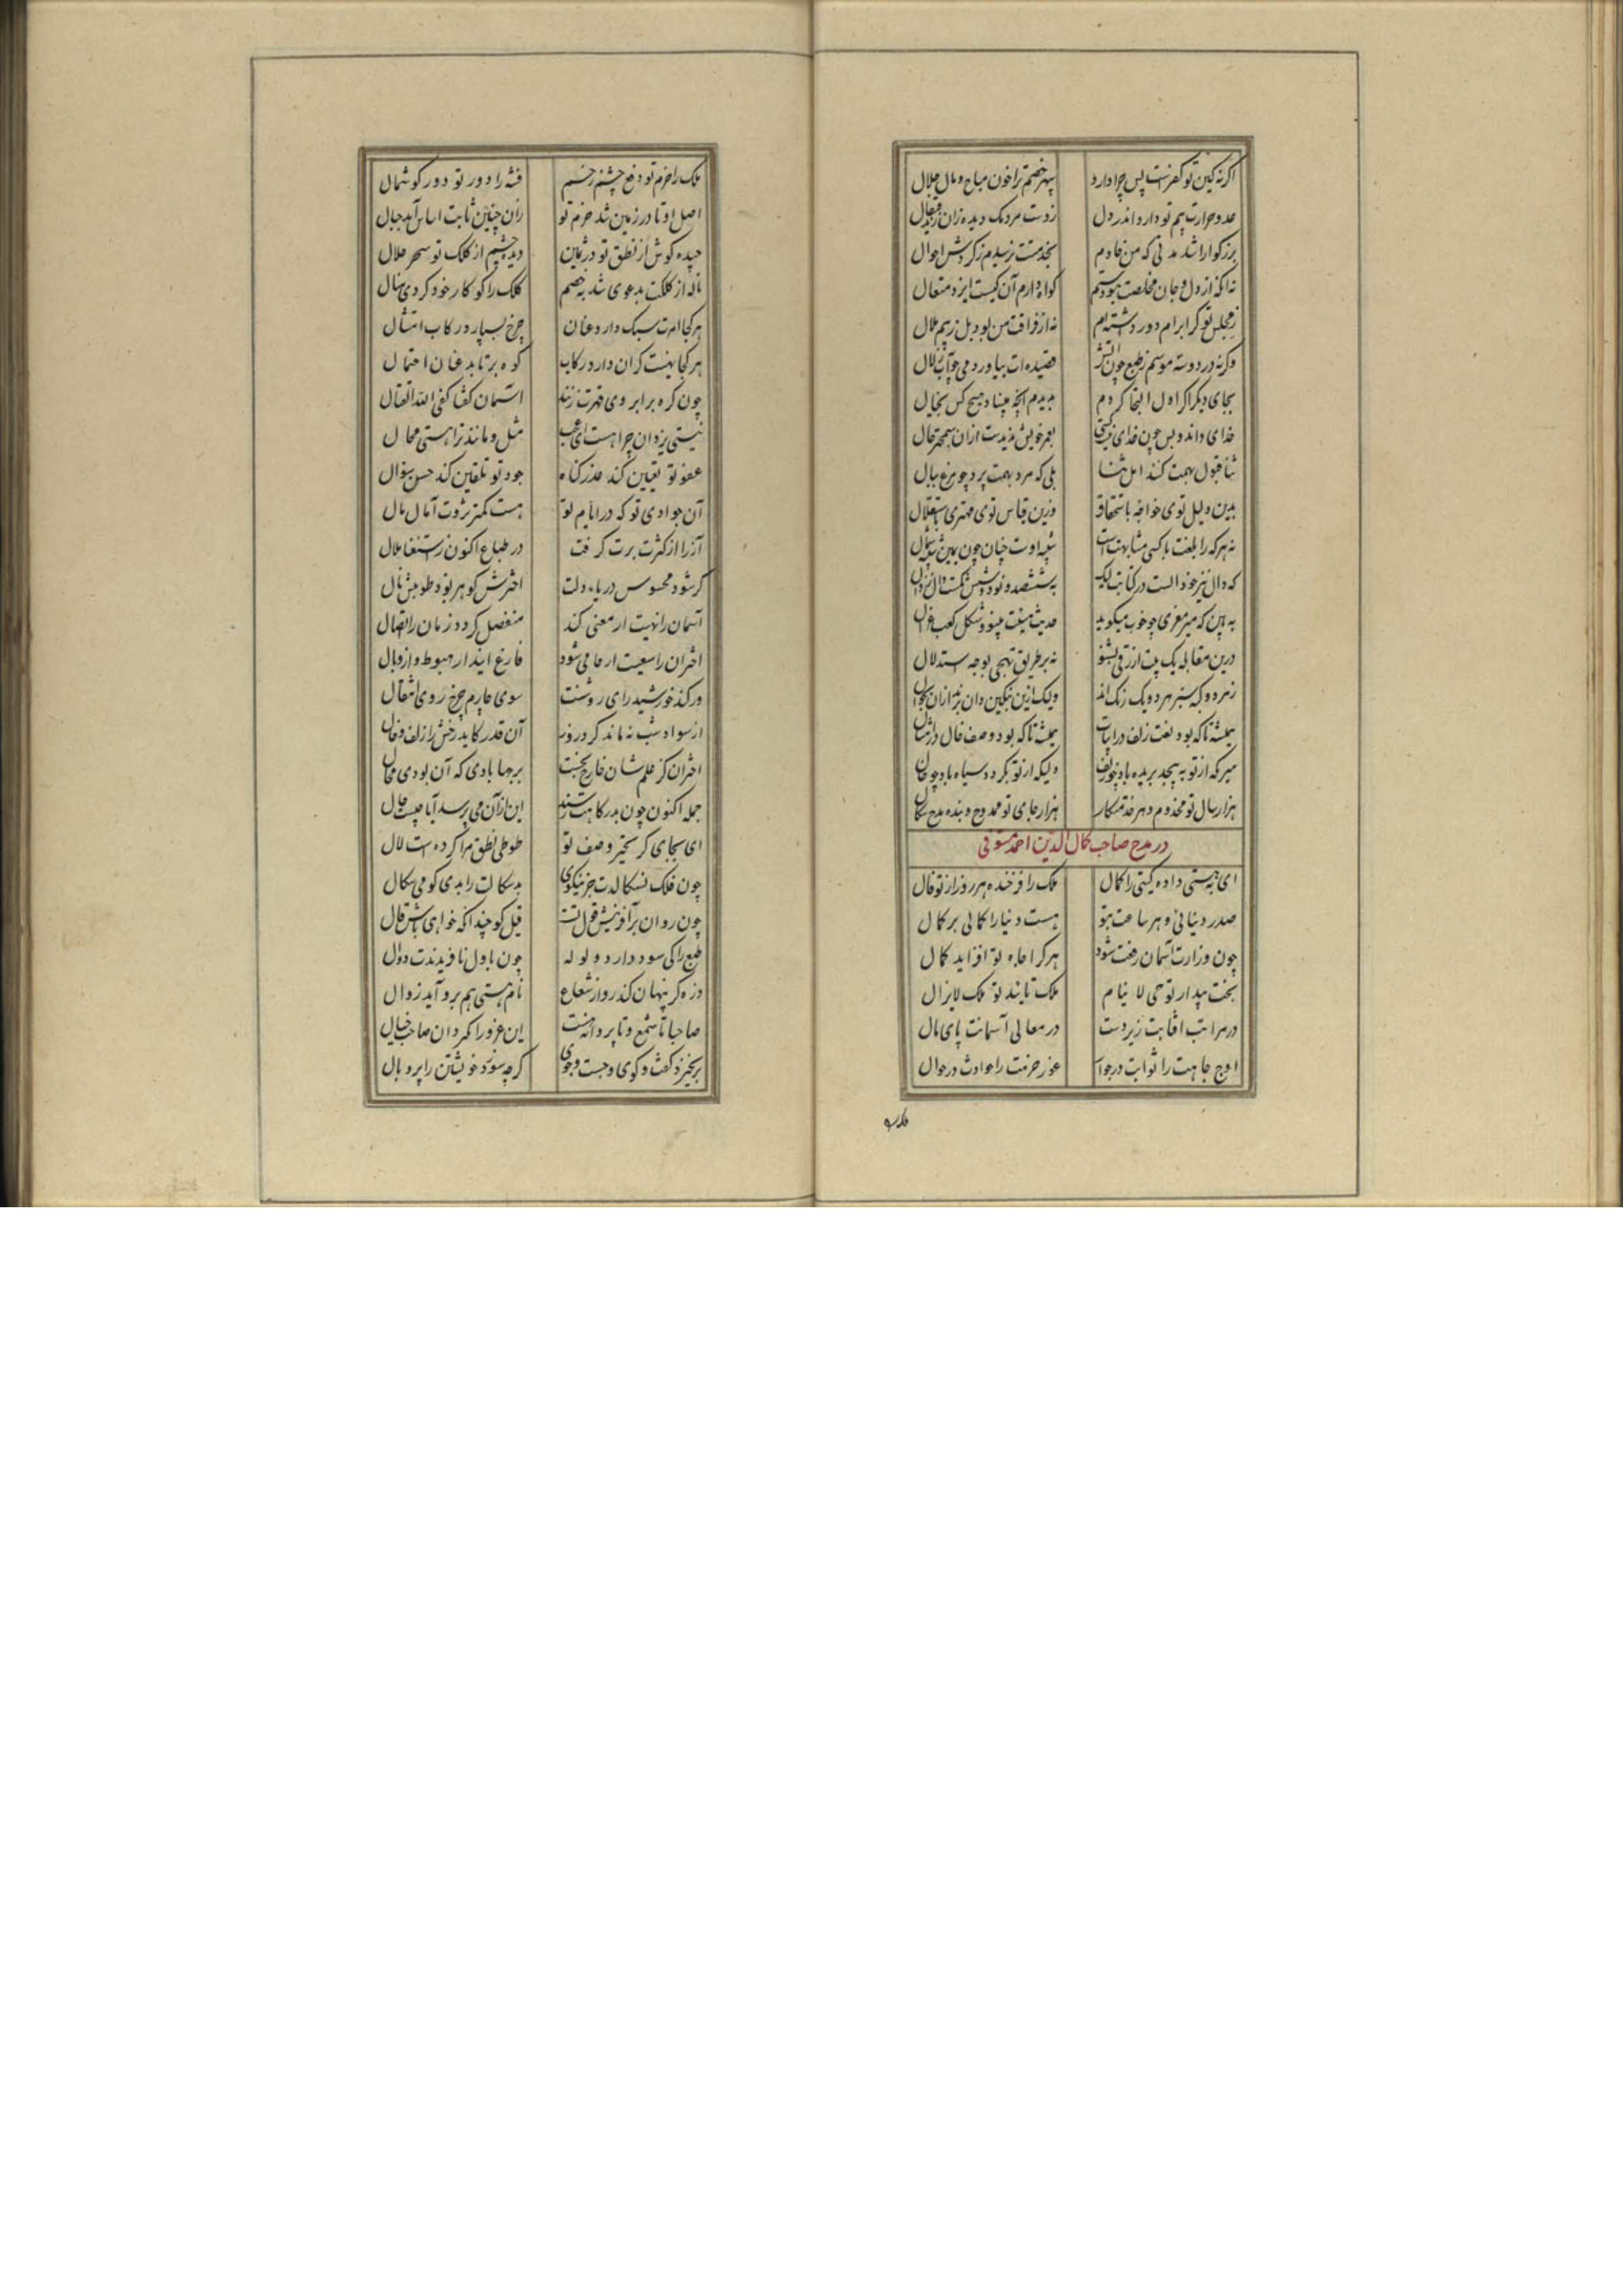 اگر نه کین تو کفرست پس چرا دارد سپهر خصم ترا خون مباح و مال حلال
عدو حرارت بیم تو دارد اندر دل زدست مردمک دیده زان
بزرگوارا شد مدتی که من خادم بخدمتت نرسیدم ز گردش احوال
نه آنکه از دل و جان مخلصت نبودستم گواه دارم آن کیست ایزد متعال
ز مجلس تو گر ابرام دور داشته‌ام نه از فراقت من بود بل ز بیم ملال
وگرنه در دو سه موسم ز طبع چون آتش قصیدهات بیاوردمی چو آب زلال
بجای دیگر اگر اول التجا کردم بدیدم آنچه مبیناد هیچ کس بخیال
خدای داند و بس چون خدای بعمر خویش ندیدست ازان سمجتر حال
ثنا قبول بهمت کنند اهل ثنا بلی که مرد بهمت پرد چو مرغ ببال
بدین دلیل توی خواجه باستحقاق وزین قیاس توی مهتری باستقلال
نه هر که را بلغت با کسی مشابهتست شبیه اوست چنان چون یمین شبیه شمال
که دال نیز چو ذالست در کتابت لیک به ششصد و نود و شش کمست دال ز ذال
به بین که میر معزی چه خوب میگوید حدیث هیئت پینو و شکل کعب غزال
درین مقابله یک بیت ازرقی بشنو نه بر طریق تهجی بوجه استدلال
زمرد و گیه سبز هر دو یک رنک‌اند ولیک ازین بنگین دان برند ازان بجوال
همیشه تا که بود نعت زلف در ابیات همیشه تا که بود وصف خال در امثال
هر که از تو به پیچد بریده باد چو زلف دلیکه از تو بگردد سیاه باد چو خال
هزار سال تو مخدوم و دهر خدمتکار هزار جای تو ممدوح و بنده مدح سگال
در مدح صاحب کمال‌الدین احمد مستوفی
ای به هستی داده گیتی را کمال ملک را فرخنده هر روز از تو فال
صدر دنیائی و هر ساعت بتو هست دنیا را کمالی بر کمال
چون وزارت آسمان رفعت شود هر کرا جاه تو افزاید کمال
بخت بیدار تو حی لا ینام ملک تایند تو ملک لایزال
در مراتب آفتابت زیردست در معالی آسمانت پای‌مال
اوج جاهت را ثوابت در جوار غور حزمت را حوادث در جوال
ملک را حزم تو دفع چشم زخم فتنه را دور تو دور گوشمال
اصل اوتاد زمین شد حزم تو زان چنین ثابت اساس آمد جبال
چیده گوش از نطق تو در ثمین دیده چشم از کلک تو سحر حلال
ناله از کلکت بدعوی شد به خصم کلک را گو کار خود کردی بنال
هر کجا امرت سبک دارد عنان چرخ بسپارد رکاب امتثال
هر کجا نهیت گران دارد رکاب کوه برتابد عنان احتمال
چون گره بر ابروی قهرت زنند آسمان گفتا کفی الله القتال
نیستی یزدان چرا هست ای عجب مثل و مانند ترا هستی محال
عفو تو تعیین کند عذر گناه جود تو تلقین کند حسن سؤال
آن جوادی تو که در ایام تو هست کمتر ثروت آمال مال
آز را از کثرت برت گرفت در طباع اکنون ز استغنا ملال
گر شود محسوس دریاء دلت اخترش گوهر بود طوبیش نال
آسمان را نهیت ار معنی کند منفصل گردد زمان را اتصال
اختران را سعیت ار حامی شود فارغ آیند از هبوط و از وبال
ور کند خورشید رای روشنت سوی چارم چرخ روی انتقال
از سواد شب نماند گرد روز آن قدر کاید رخش را زلف و خال
اختران کز علمشان خارج نجست بر جهابادی که آن بودی محال
جمله اکنون چون بدرگاهت رسند این ازآن می پرسد آیا چیست حال
ای بجای کز تحیر وصف تو طوطی نطق مرا کردست لال
چون فلک نسگالدت جز نیکوی بدسگالت را بدی گو می‌سگال
چون روان بر آفرینش قول تست قیل گو چندانکه خواهی باش و قال
طبع را کی سود دارد ولوله چون باول نافریدندت دوال
ذره گر پنهان کند رو از شعاع نام هستی هم برو آید زوال
صاحبا تا شمع و تا پروانه هست این غرور را گردان صاحب خیال
برنخیزد گفت و گوی و جست و جوی گرچه سوزد خویشتن را پر و بال